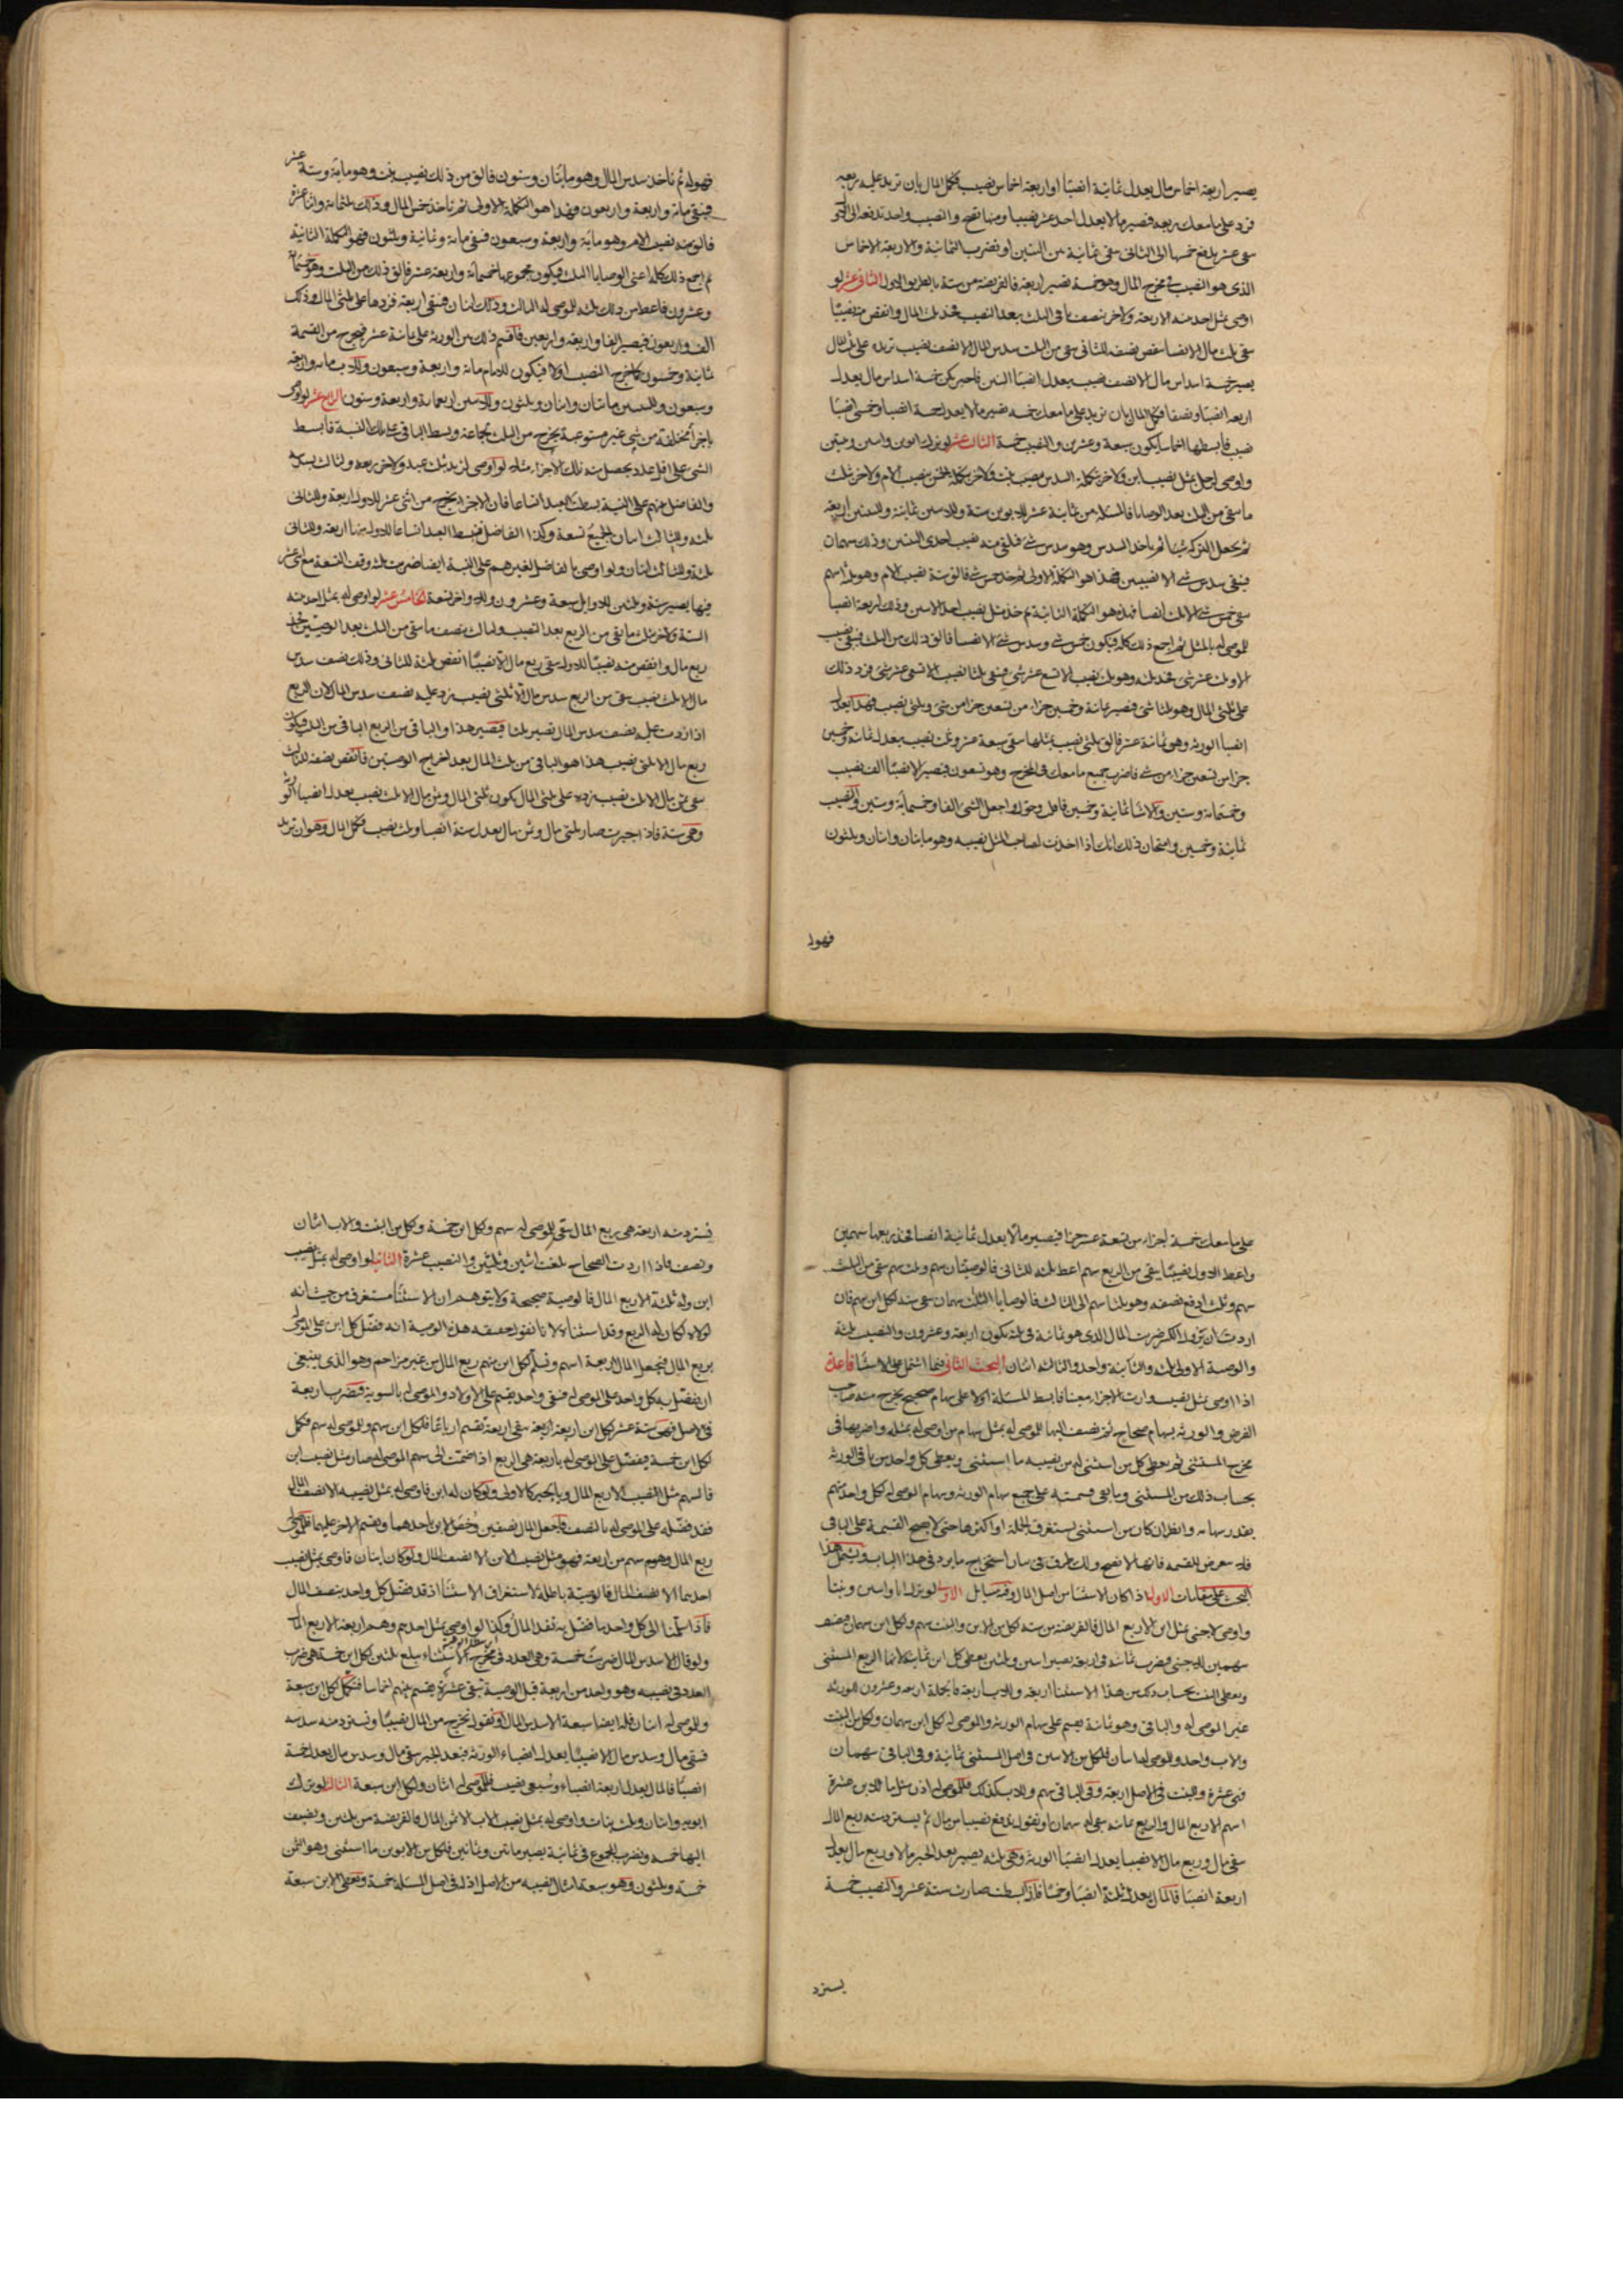 يصير اربعة اخماس مال يعدل ثمانية انصبا واربعة اخماس نصيب فكمل المال بان تزيد عليه ربعه
فزد على ما معك ربعه فيصير مالا يعدل احد عشر نصيبا ومنها تصح والنصيب واحد تدفعه الى
يبقى عشر يدفع خمسها الى الثانى يبقى ثمانية بين البنين او نضرب الثمانية والاربعة الاخماس
الذى هو النصيب فى مخرج المال وهو خمسة تصير اربعة فالفريضة من ستة بالطريق الاول الثانى عشر لو
اوصى بمثل احد منه الاربعة ولاخر بنصف باقى الثلث بعد النصيب فخذ ثلث المال وانقص منه نصيبا
يبقى ثلث مال الا نصيبا انقص نصفه للثانى يبقى من الثلث سدس المال الا نصف نصيب تزيده على ثلثى المال
يصير خمسة اسداس مال الا نصف نصيب يعدل انصبا البنين فاجبر يكن خمسة اسداس مال يعدل
اربعة انصبا ونصفا فكمل المال بان تزيد على ما معك خمسه فيصير مالا يعدل خمسة انصبا وخمسى
نصيب فابسطها اخماسا يكون سبعة وعشرين والنصيب خمسة الثالث عشر لو ترك ابوين وابنين وبنتين
واوصى لرجل بمثل نصيب ابن ولاخر بتكملة السدس بنصيب بنت ولاخر بتكملة الخمس بنصيب الام ولاخر بثلث
ما يبقى من الثلث بعد الوصايا فالمسئلة من ثمانية عشر للابوين ستة وللابنين ثمانية وللبنتين اربعة
ثم يجعل التركة شيئا ثم ياخذ السدس وهو سدس شئ فيلقى منه نصيب احدى البنتين وذلك سهمان
فيبقى سدس شئ الا نصيبين فهذا هو التكملة الاولى ثم خذ خمس شئ فالق منه نصيب الام وهو ثلثة اسهم
يبقى خمس شئ الا ثلثة انصبا فهذه هو التكملة الثانية ثم خذ مثل نصيب احد الابنين وذلك اربعة انصبا
للموصى له بالمثل ثم اجمع ذلك كله فيكون خمس شئ وسدس شئ الا نصيبا فالق ذلك من الثلث فيبقى نصيب
على ثلثى المال وهو ثلثا شئ فيصير ثمانية وخمسين جزءا من تسعين جزا من شئ وثلثى نصيب فهذا يعدل
انصبا الورثة وهو ثمانية عشر فالق ثلثى نصيب بمثلها يبقى سبعة عشر وثلث نصيب يعدل ثمانية وخمسين
جزا من تسعين جزا من شئ فاضرب جميع ما معك فى المخرج وهو تسعون فيصير الانصبا الف نصيب
وخمسمائة وستين والاشيا ثمانية وخمسين فاقلب وحول واجعل الشئ الفا وخمسمائة وستين والنصيب
ثمانية وخمسين وامتحان ذلك انك اذا اخذت لصاحب المثل نصيبه وهو مايتان واثنان وثلثون
فهوله
فهوله ثم تاخذ سدس المال وهو مايتان وستون فالق من ذلك نصيب بنت وهو ماية وستة عشر
فيبقى ماية واربعة واربعون فهذا هو التكملة الاولى ثم تاخذ خمس المال وذلك ثلثمائة واثنا عشرة
فالق منه نصيب الام وهو ماية واربعة وسبعون فيبقى ماية وثمانية وثلثون فهو التكملة الثانية
ثم اجمع ذلك كله اعنى الوصايا الثلث فيكون مجموعها خمسمائة واربعة عشر فالق ذلك من الثلث وهو خمسمائة
وعشرون فاعط من ذلك ثلثه للموصى له الثالث وذلك اثنان فيبقى اربعة فزدها على ثلثى المال وذلك
الف واربعون فيصير الفا واربعة واربعين فاقسم ذلك بين الورثة على ثمانية عشر فيخرج من القسمة
ثمانية وخمسون كما خرج النصيب اولا فيكون للام ماية واربعة وسبعون وللاب ماية واربعة
وسبعون وللبنتين مايتان واثنان وثلثون وللابنين اربعمائة واربعة وستون الرابع عشر لو اوصى
باجزا مختلفة من شئ غير مستوعبة يخرج من الثلث لجماعة وبسط الباقى على تلك النسبة فابسط
الشئ على اقل عدد يحصل منه تلك الاجزا مثله لو اوصى لزيد بثلث عبد ولاخر بربعه ولثالث بسدسه
والفاضل بينهم على النسبة بسطت العبد اتساعا فان الاجزا يخرج من اثنى عشر للاول اربعة وللثانى
ثلثة وللثالث اثنان والجميع تسعة وكذا الفاضل فبسط العبد اتساعا للاول منها اربعة وللثانى
ثلثة وللثالث اثنان ولو اوصى بالفاضل لغيرهم على النسبة ايضا ضربت ثلث وفق التسعة مع اثنى عشر
الستة ولاخر بثلث ما يبقى من الربع بعد النصيب ولثالث بنصف ما يبقى من الثلث بعد الوصيتين فخذ
ربع مال وانقص منه نصيبا للاول يبقى ربع مال الا نصيبا انقص ثلثه للثانى وذلك نصف سدس
مال الا ثلث نصيب يبقى من الربع سدس مال الا ثلثى نصيب يزد عليه نصف سدس المال لان الربع
اذا زدت عليه نصف سدس المال تصير ثلثا فيصير هذا والباقى من الربع الباقى من الثلث فيكون
ربع مال الا ثلثى نصيب هذا هو الباقى من ثلث المال بعد اخراج الوصيتين فانقص نصفه للثالث
يبقى ثمن مال الا ثلث نصيب يزده على ثلثى المال يكون ثلثى المال وثمن مال الا ثلث نصيب يعدل انصبا الورثة
وهى ستة فاذا جبرت صار ثلثى مال وثمن مال يعدل ستة انصبا وثلث نصيب فكمل المال وهو ان تزيد
على ما معك خمسة اجزاء من تسعة عشر جزا فيصير مالا يعدل ثمانية انصبا فخذ ربعها سهمين
واعط الاول نصيبا يبقى من الربع سهم اعط ثلثه للثانى فالوصيتان سهم وثلث سهم يبقى من الثلث
سهم وثلث ادفع نصفه وهو ثلثا سهم الى الثالث فالوصايا الثلث سهمان يبقى ستة لكل ابن سهم فان
اردت ان يزول الكسر ضربت المال الذى هو ثمانية فى ثلثة يكون اربعة وعشرون والنصيب ثلثة
والوصية الاولى ثلثة والثانية واحد والثالثة اثنان البحث الثانى فيما اشتمل على الاستثنا قاعدة
اذا اوصى بمثل نصيب وارث الا جزا معينا فابسط المسئلة اولا على سهام صحيح يخرج منه صاحب
الفرض والورثة بسهام صحاح ثم تضيف اليها للموصى له بمثل سهام من اوصى له بمثله واضربها فى
مخرج المستثنى ثم يعطى كل من استثنى له من نصيبه ما استثنى ويعطى كل واحد من باقى الورثة
بحساب ذلك من المستثنى وما بقى قسمته على جميع سهام الورثة وسهام الموصى له لكل واحد منهم
بقدر سهامه وانظر ان كان من استثنى يستغرق الجملة او اكثرها حتى لا يصح القسمة على الباقى
البحث على مقامات الاول اذا كان الاستثنا من اصل المال وفيه مسايل الاولى لو ترك ابا وابنين وبنتا
واوصى لاجنبى بمثل ابن الا ربع المال فالفريضة من ستة لكل من الاب والبنت سهم ولكل ابن سهمان فيضيف
سهمين للاجنبى فيضرب ثمانية فى اربعة يصير اثنين وثلثين يعطى كل ابن ثمانية لانها الربع المستثنى
ويعطى البنت بحساب ذلك من هذا الاستثنا اربعة والاب اربعة فالجملة اربعة وعشرون للورثة
غير الموصى له والباقى وهو ثمانية يقسم على سهام الورثة والموصى له لكل ابن سهمان ولكل من البنت
والاب واحد وللموصى له اثنان فلكل من الابنين فى اصل المستثنى ثمانية وفى الباقى سهمان
فهى عشرة وللبنت فى الاصل اربعة وفى الباقى سهم وللاب كذلك فللموصى له اذن مثل ما للابن عشرة
اسهم الا ربع المال والربع ثمانية يبقى له سهمان او نقول تدفع نصيبا من مال ثم يسترد منه ربع المال
يبقى مال وربع مال الا نصيبا يعدل انصبا الورثة وهى ستة يصير بعد الجبر مالا وربع مال يعدل
فالمال يعدل انصبا وخمسا فاذا بسطت صارت ستة عشر والنصيب خمسة
يسترد
فيسترد منه اربعة هى ربع المال يبقى للموصى له سهم ولكل ابن خمسة ولكل من البنت والاب اثنان
ونصف فاذا اردت الصحاح بلغت اثنين وثلثين والنصيب عشرة الثانية لو اوصى له بمثل نصيب
ابن وله ثلثة الا ربع المال فالوصية صحيحة ولا يتوهم ان الاستثنا مستغرق من حيث انه
لولاه لكان له الربع وقد استثناه لانا نقول حقيقة هذه الوصية انه فضل كل ابن على الموصى له
بربع المال فيجعل المال اربعة اسهم ونسلم لكل ابن منهم ربع المال من غير مزاحم وهو الذى ينبغى
ان يفضل به كل واحد على الموصى له فيبقى واحد يقسم على الاولاد والموصى له بالسوية فيضرب اربعة
فى الاصل فهى ستة عشر لكل ابن اربعة اربعة يبقى اربعة تقسم ارباعا فلكل ابن سهم وللموصى له سهم فكمل
لكل ابن خمسة فيفضل على الموصى له باربعة هى الربع اذا اضممت الى سهم الموصى له صار مثل نصيب ابن
فالسهم مثل النصيب الا ربع المال وبالجبر كالاولى ولو كان له ابن فاوصى له بمثل نصيبه الا نصف المال
فقد فضله على الموصى له بالنصف فاجعل المال نصفين وخص الابن باحدهما ويقسم الاخر عليهما فللموصى له
ربع المال وهو سهم من اربعة فهو مثل نصيب الابن الا نصف المال ولو كان ابنان فاوصى بمثل نصيب
احدهما الا نصف المال فالوصية باطلة لاستغراق الاستثنا اذ قد فضل كل واحد بنصف المال
فاذا سلمنا الى كل واحد ما فضل به نفد المال وكذا لو اوصى بمثل احدهم وهم اربعة الا ربع المال
ولو قال الا سدس المال ضربت خمسة وهى العدد فى مخرج الاستثناء يبلغ ثلثين لكل ابن خمسة هى ضرب
العدد فى نصيبه وهو واحد من اربعة قبل الوصية تبقى عشرة يقسم بينهم اخماسا فتكمل لكل ابن سبعة
وللموصى له اثنان فله ايضا سبعة الا سدس المال او نقول يخرج من المال نصيبا ونسترد منه سدسه
فيبقى مال وسدس مال الا نصيبا يعدل انصباء الورثة فبعد الجبر يبقى مال وسدس مال يعدل خمسة
انصبا فالمال يعدل اربعة انصباء وسبعى نصيب فللموصى له اثنان ولكل ابن سبعة الثالثة لو ترك
ابويه وابنان وثلث بنات واوصى له بمثل نصيب الاب الا ثمن المال فالفريضة من ثلثين ونضيف
اليها خمسة ونضرب المجموع فى ثمانية يصير مائتين وثمانين فلكل من الابوين ما استثنى وهو الثمن
خمسة وثلثون وهو سبعة امثال نصيبه من الاصل اذ له فى اصل المسئلة خمسة ونعطى الابن سبعة